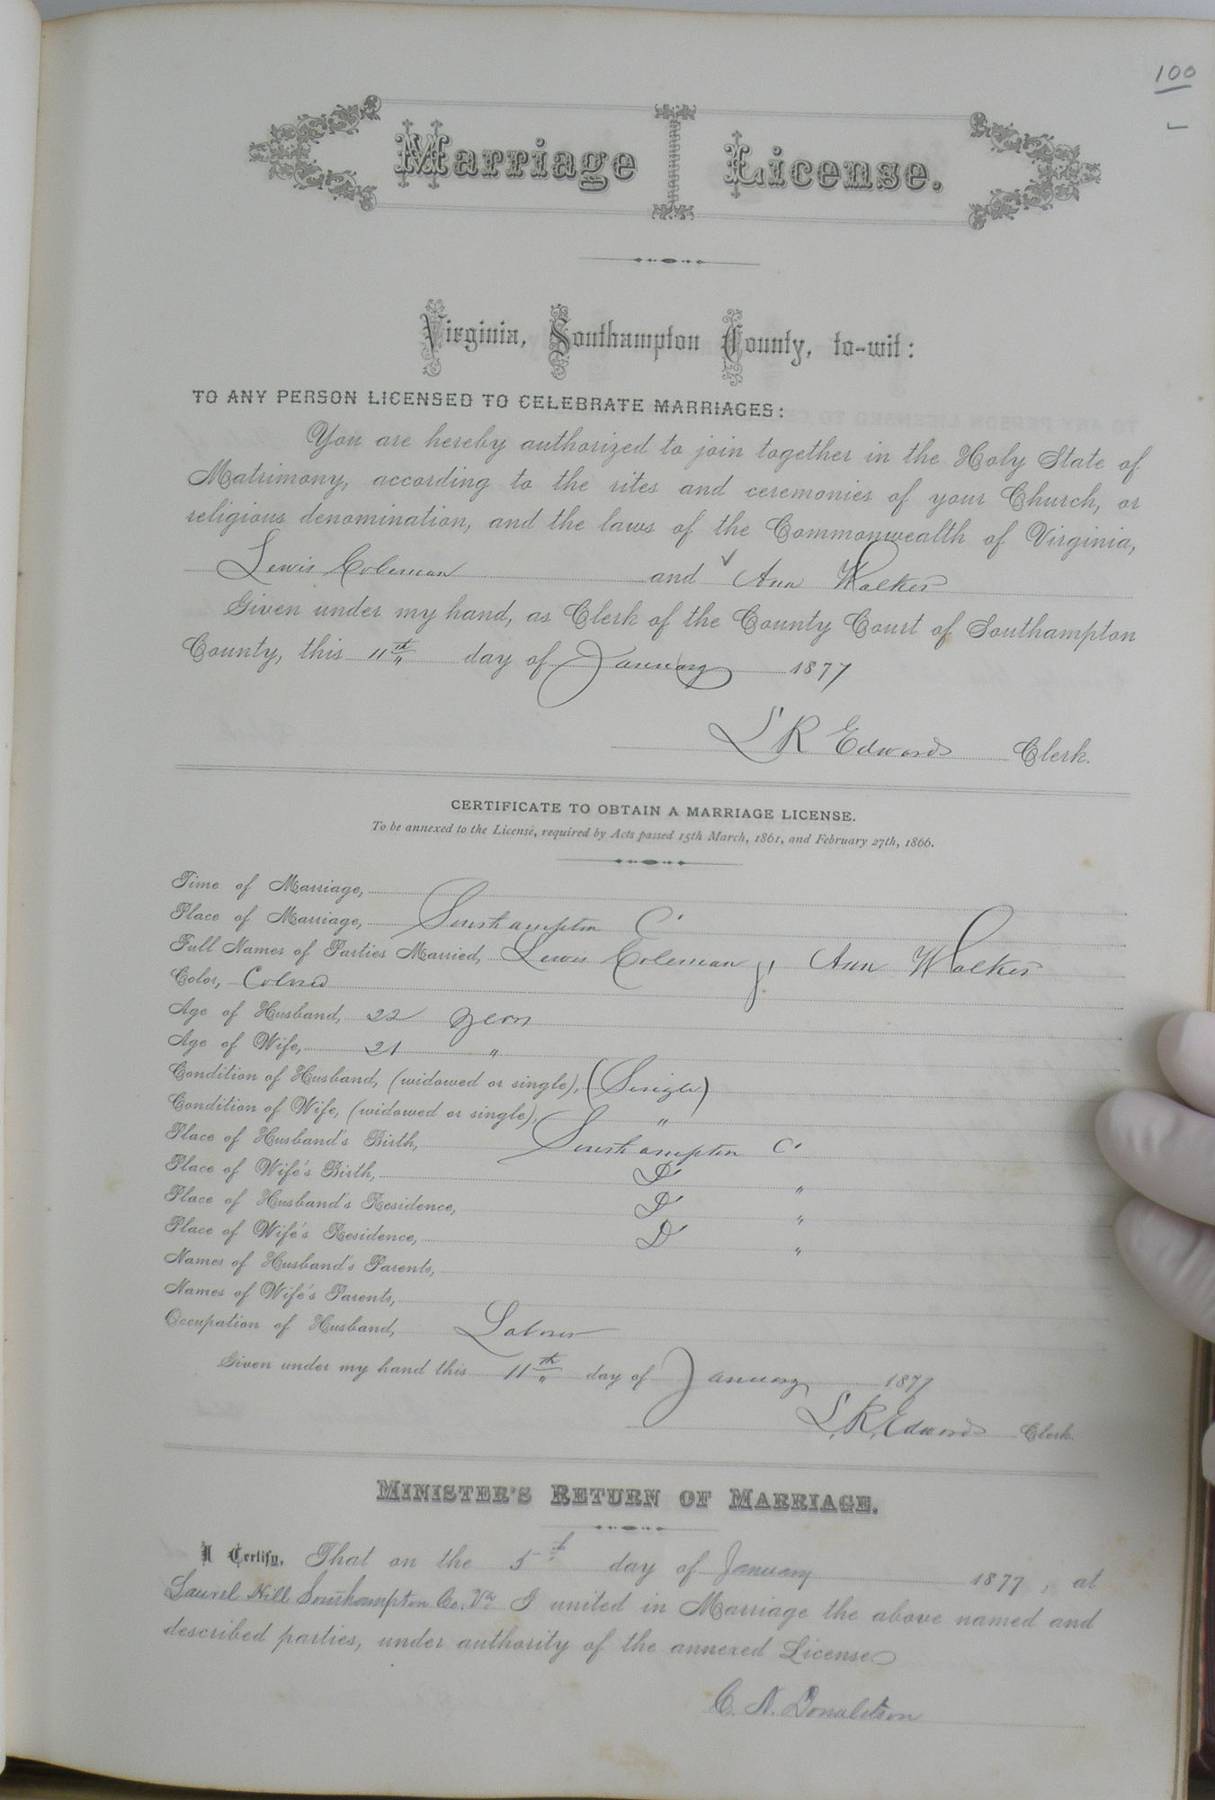 100
Marriage License.
Virginia, Southampton County, to-wit:
TO ANY PERSON LICENSED TO CELEBRATE MARRIAGES:
You are hereby authorized to join together in the Holy State of
Matrimony, according to the rites and ceremonies of your Church, or
religious denomination, and the laws of the Commonwealth of Virginia,
Lewis Coleman and Ann Walker
Given under my hand, as Clerk of the County Court of Southampton
County, this 11th day of January 1877
L R Edwards Clerk.
CERTIFICATE TO OBTAIN A MARRIAGE LICENSE.
To be annexed to the License, required by Acts passed 15th March, 1861, and February 27th, 1866.
Time of Marriage,
Place of Marriage, Southampton C
Full Names of Parties Married, Lewis Coleman & Ann Walker
Color, Colored
Age of Husband, 22 years
Age of Wife, 21 "
Condition of Husband, (widowed or single), (Single)
Condition of Wife, (widowed or single), "
Place of Husband's Birth, Southampton C
Place of Wife's Birth, Do "
Place of Husband's Residence, Do "
Place of Wife's Residence, Do "
Names of Husband's Parents,
Names of Wife's Parents,
Occupation of Husband, Laborer
Given under my hand this 11th day of January 1877
L. R. Edwards Clerk.
MINISTER'S RETURN OF MARRIAGE.
I Certify, That on the 5th day of January 1877, at
Laurel Hill Southampton Co. Va I united in Marriage the above named and
described parties, under authority of the annexed License
C. N. Donaldson